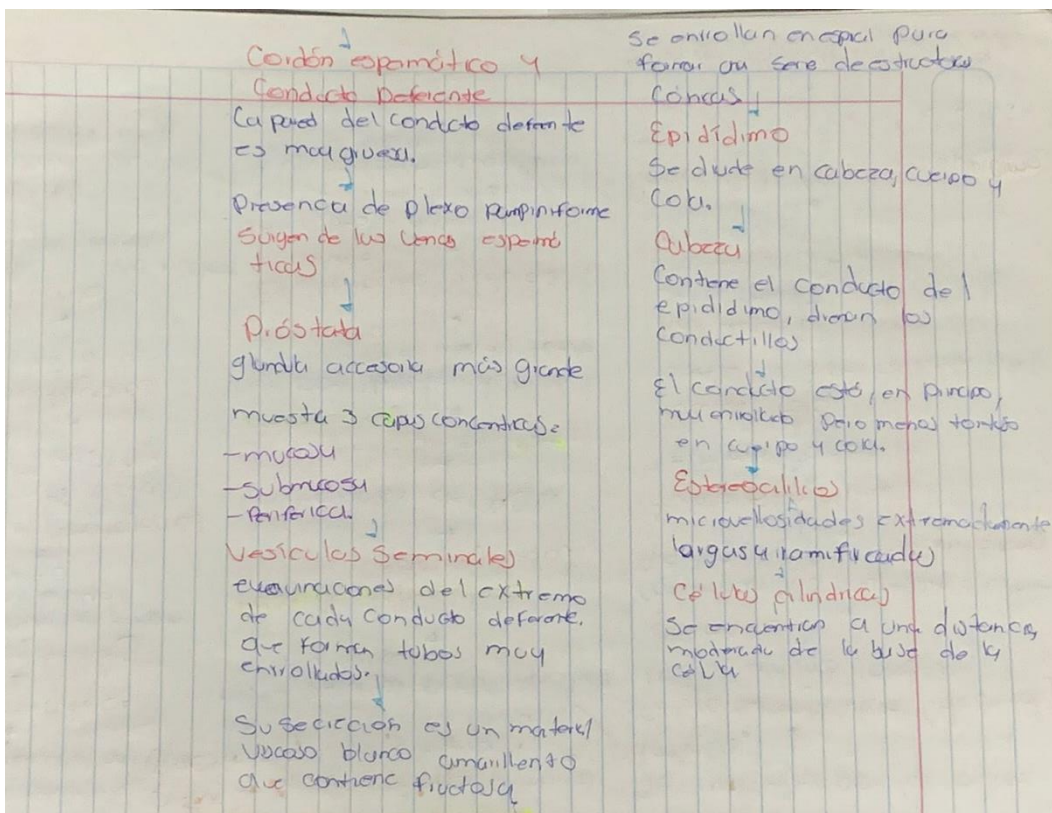 Cordón espermático y
Conducto Deferente
La pared del conducto deferente
es muy gruesa.
Presencia de plexo pampiniforme
Surgen de las venas espermá
ticas
Próstata
glandula accesoria más grande
muestra 3 capas concentricas:
-mucosa
-submucosa
-Periferica.
Vesículas Seminales
evaginaciones del extremo
de cada conducto deferente.
que forman tubos muy
enrollados.
Su secreción es un material
viscoso blanco amarillento
que contiene fructosa
Se enrollan en espiral para
formar una serie de estructuras
Cónicas
Epidídimo
Se divide en cabeza, cuerpo y
Cola.
Cabeza
Contiene el conducto del
epididimo, drenan los
conductillos
El conducto está, en principio,
muy enrollado pero menos
en cuerpo y cola.
Estereocilios
microvellosidades extremadamente
largas y ramificadas
Células cilindricas
Se encuentran a una distancia
moderada de la base de la
celula